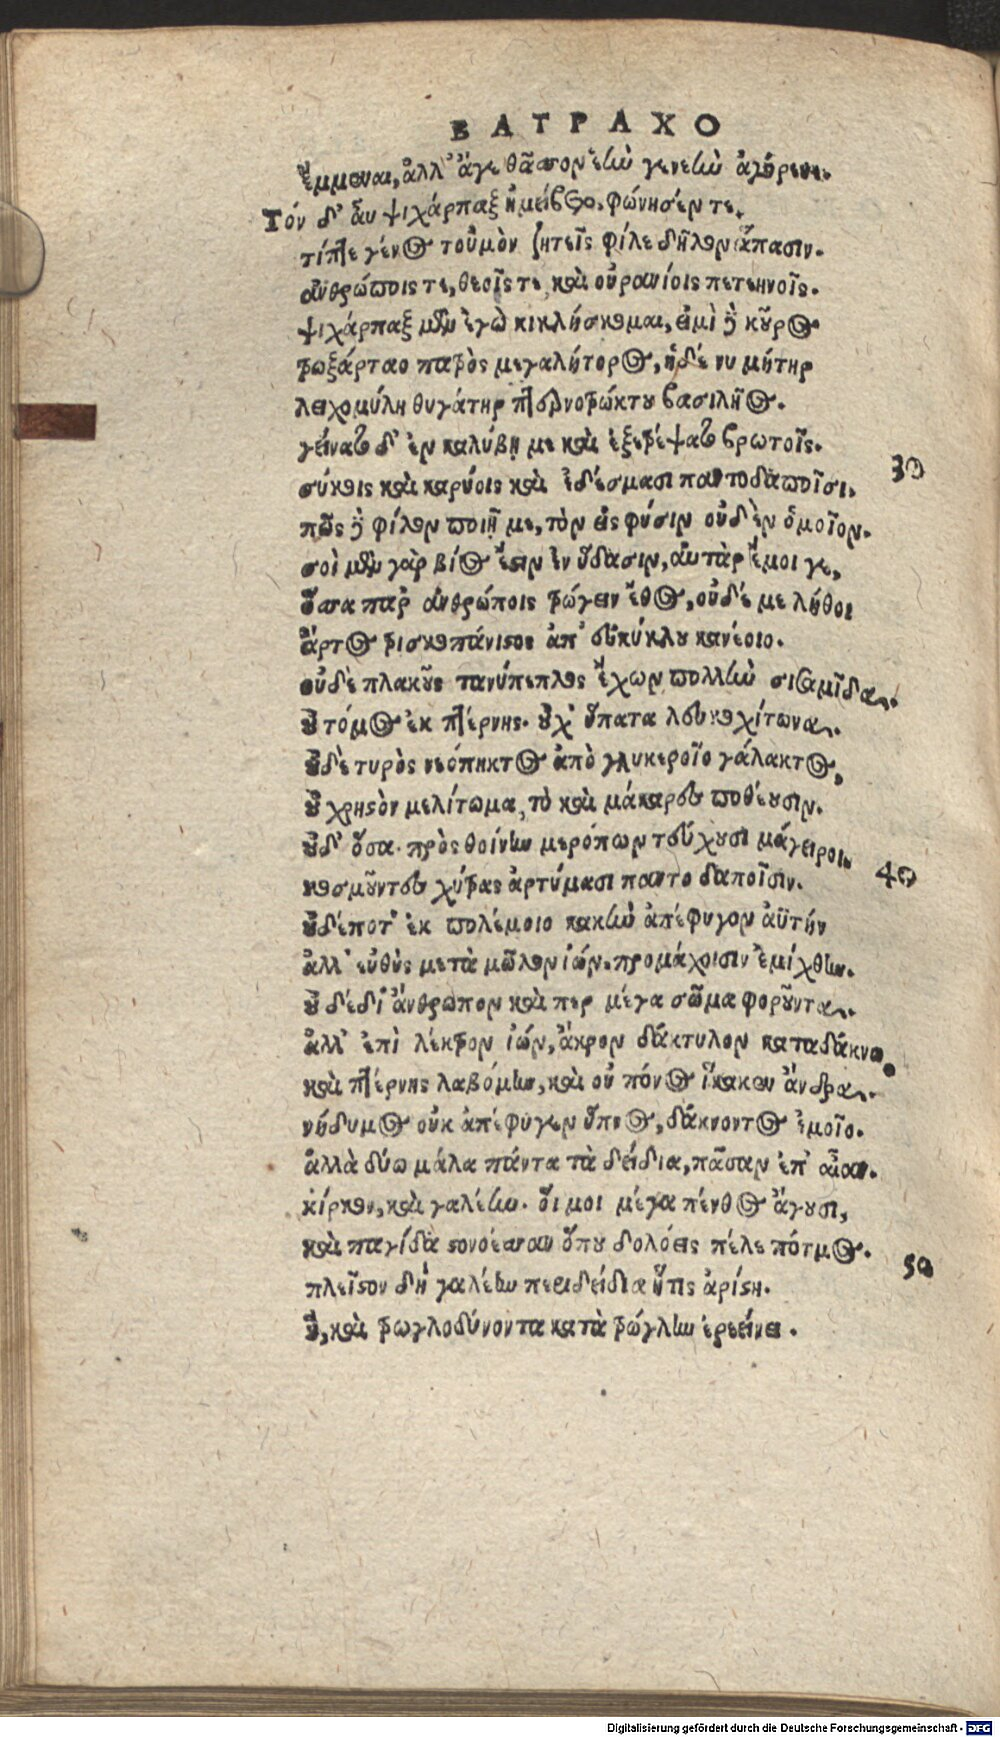 ΒΑΤΡΑΧΟ
ἔμμεναι, ἀλλ' ἄγε θᾶσσον ἑὴν γενεὴν ἀγόρευε.
Τόν δ' αὖ ψιχάρπαξ ἠμείβετο, φώνησέν τε,
τίπτε γένος τοὐμὸν ζητεῖς φίλε δῆλον ἅπασιν.
ἀνθρώποις τε, θεοῖς τε καὶ οὐρανίοις πετεηνοῖς.
ψιχάρπαξ μὲν ἐγὼ κικλήσκομαι, εἰμὶ δὲ κοῦρος
τρωξάρταο πατρὸς μεγαλήτορος, ἡδέ νυ μήτηρ
λειχομύλη θυγάτηρ πτερνοτρώκτου βασιλῆος.
γείνατο δ' ἐν καλύβῃ με καὶ ἐξεθρέψατο βρωτοῖς.
30
σύκοις καὶ καρύοις καὶ ἐδέσμασι παντοδαποῖσι.
πῶς δὲ φίλον ποιῇ με, τὸν εἰς φύσιν οὐδὲν ὁμοῖον.
σοὶ μὲν γὰρ βίος ἔειν ἐν ὕδασιν, αὐτὰρ ἔμοι γε,
ὅσσα παρ' ἀνθρώποις τρώγειν ἔθος, οὐδέ με λήθοι
ἄρτος τρισκοπάνιστος ἀπ' εὐκύκλου κανέοιο.
οὐδὲ πλακοῦς τανύπεπλος ἔχων πολλὴν σισαμῖδα.
οὐ τόμος ἐκ πτέρνης. οὐχ' ὕπατα λευκοχίτωνα.
οὐδὲ τυρὸς νεόπηκτος ἀπὸ γλυκεροῖο γάλακτος,
οὐ χρηστὸν μελίτωμα, τὸ καὶ μάκαρες ποθέουσιν.
οὐδ' ὅσα πρὸς θοίνην μερόπων τεύχουσι μάγειροι.
40
κοσμοῦντες χύτρας ἀρτύμασι παντοδαποῖσιν.
οὐδέποτ' ἐκ πολέμοιο κακὴν ἀπέφυγον ἀϋτήν
ἀλλ' εὐθὺς μετὰ μῶλον ἰών. προμάχοισιν ἐμίχθην.
οὐ δέδι' ἄνθρωπον καὶ περ μέγα σῶμα φοροῦντα.
ἀλλ' ἐπὶ λέκτρον ἰών, ἄκρον δάκτυλον καταδάκνω.
καὶ πτέρνης λαβόμην, καὶ οὐ πόνος ἵκακεν ἄνδρα.
νήδυμος οὐκ ἀπέφυγεν ὕπνος, δάκνοντος ἐμοῖο.
ἀλλὰ δύω μάλα πάντα τὰ δείδια, πᾶσαν ἐπ' αἶαν.
κίρκον, καὶ γαλέην. οἵ μοι μέγα πένθος ἄγουσι,
καὶ παγίδα στονόεσσαν ὅπου δολόεις πέλε πότμος.
50
πλεῖστον δὴ γαλέην περιδείδια ἥτις ἀρίστη.
ἥ, καὶ τρωγλοδύνοντα κατὰ τρώγλην ἐρεείνει.
Digitalisierung gefördert durch die Deutsche Forschungsgemeinschaft - DFG